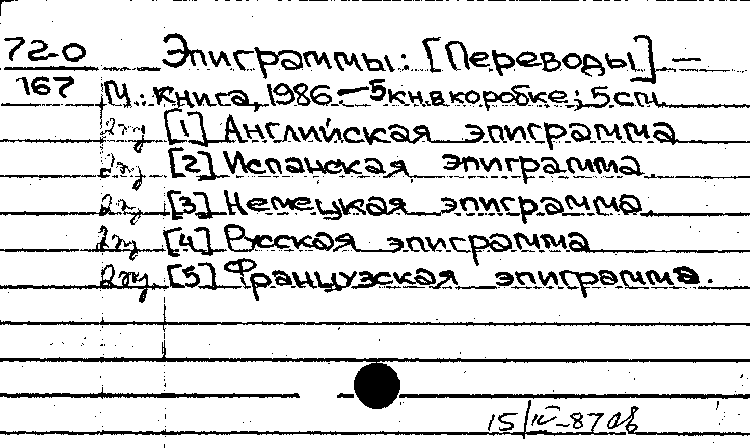 72-0 Эпиграммы: [Переводы] —
167 М.: Книга, 1986. — 5 кн. в коробке; 5 см.
[1] Английская эпиграмма
[2] Испанская эпиграмма.
[3] Немецкая эпиграмма.
[4] Русская эпиграмма
[5] Французская эпиграмма.
15/IV-87